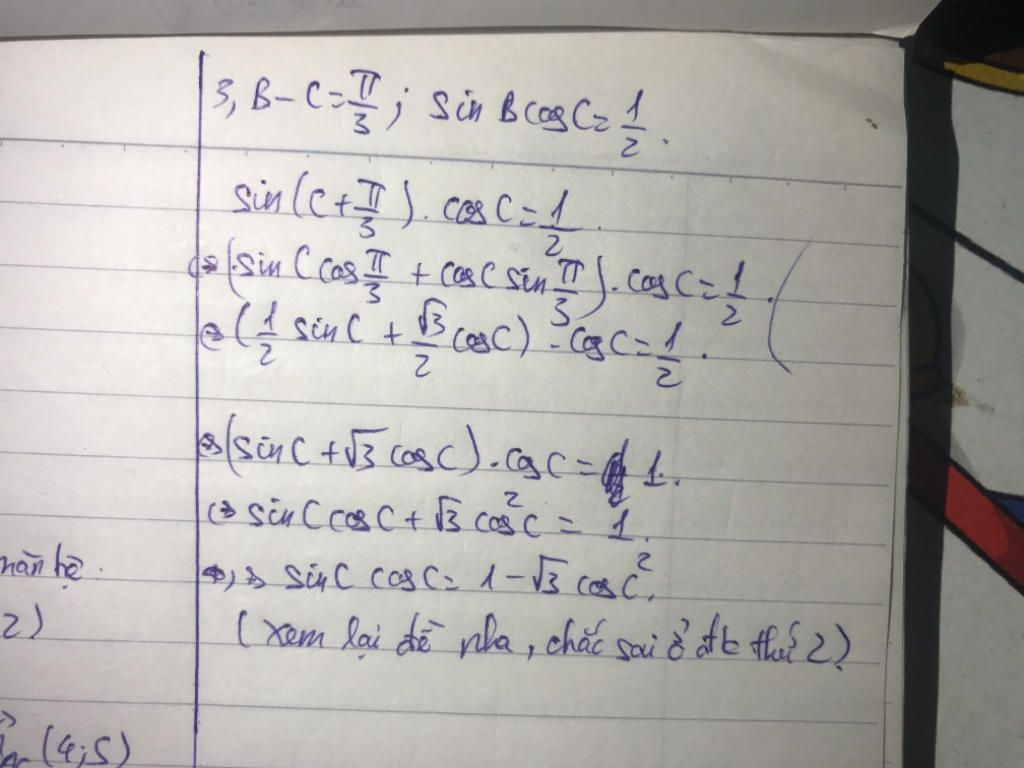 3, B - C = π/3 ; sin B cos C = 1/2 .
sin(C + π/3) . cos C = 1/2 .
<=> (sin C cos π/3 + cos C sin π/3) . cos C = 1/2 .
<=> (1/2 sin C + √3/2 cos C) . cos C = 1/2 .
<=> (sin C + √3 cos C) . cos C = 1.
<=> sin C cos C + √3 cos²C = 1.
<=> sin C cos C = 1 - √3 cos C².
(xem lại đề nha, chắc sai ở đk thứ 2)
2)
(4;5)